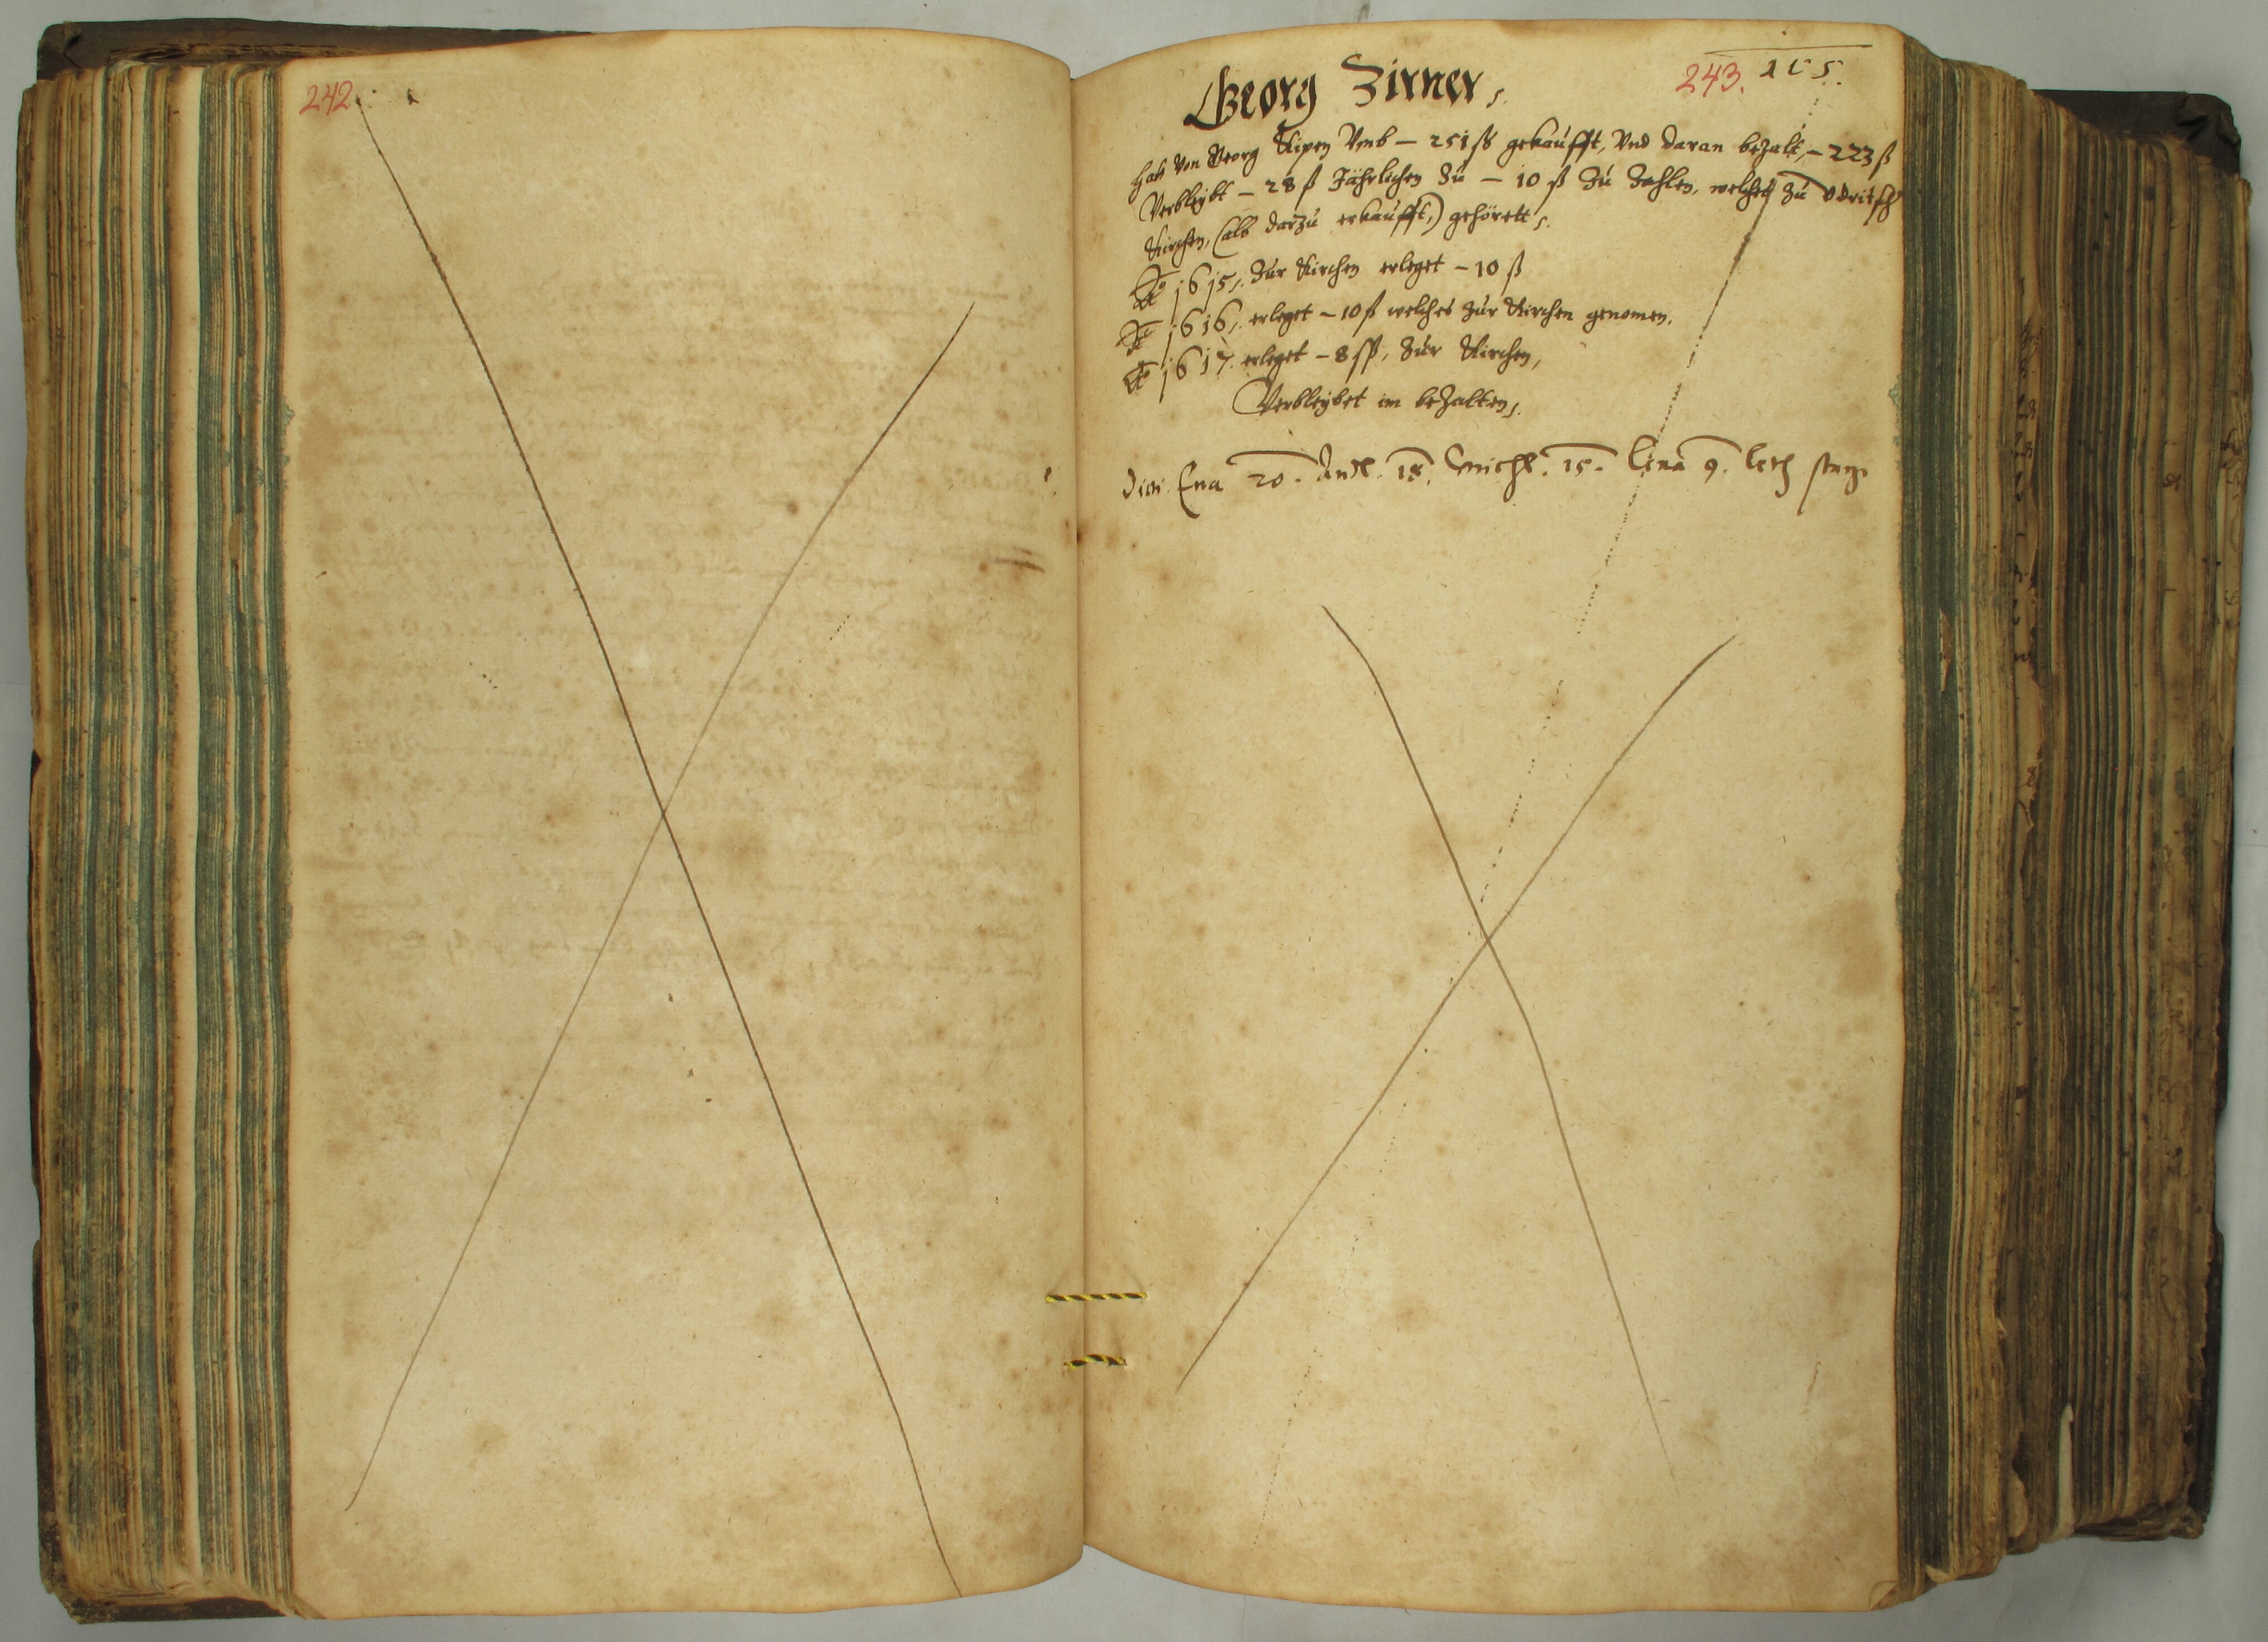 242
243. 165.
Georg Zirner,
Hab Von Georg Kipen Vmb – 251 ß gekaufft, Vnd daran bezalt, – 223 ß
Verbleÿbt – 28 ß Jährlichen zu – 10 ß zu Zahlen, welches zu Vdritsch
Kirchen, (alß darzu erkaufft,) gehörett,
Ao 1615, Zur Kirchen erleget – 10 ß
Ao 1616, erleget – 10 ß welches zur Kirchen genomen,
Ao 1617 erleget – 8 ß, Zur Kirchen,
Verbleÿbet im bezalten,
Eua 20. Andl. 18. Michl. 15. Lena 9.